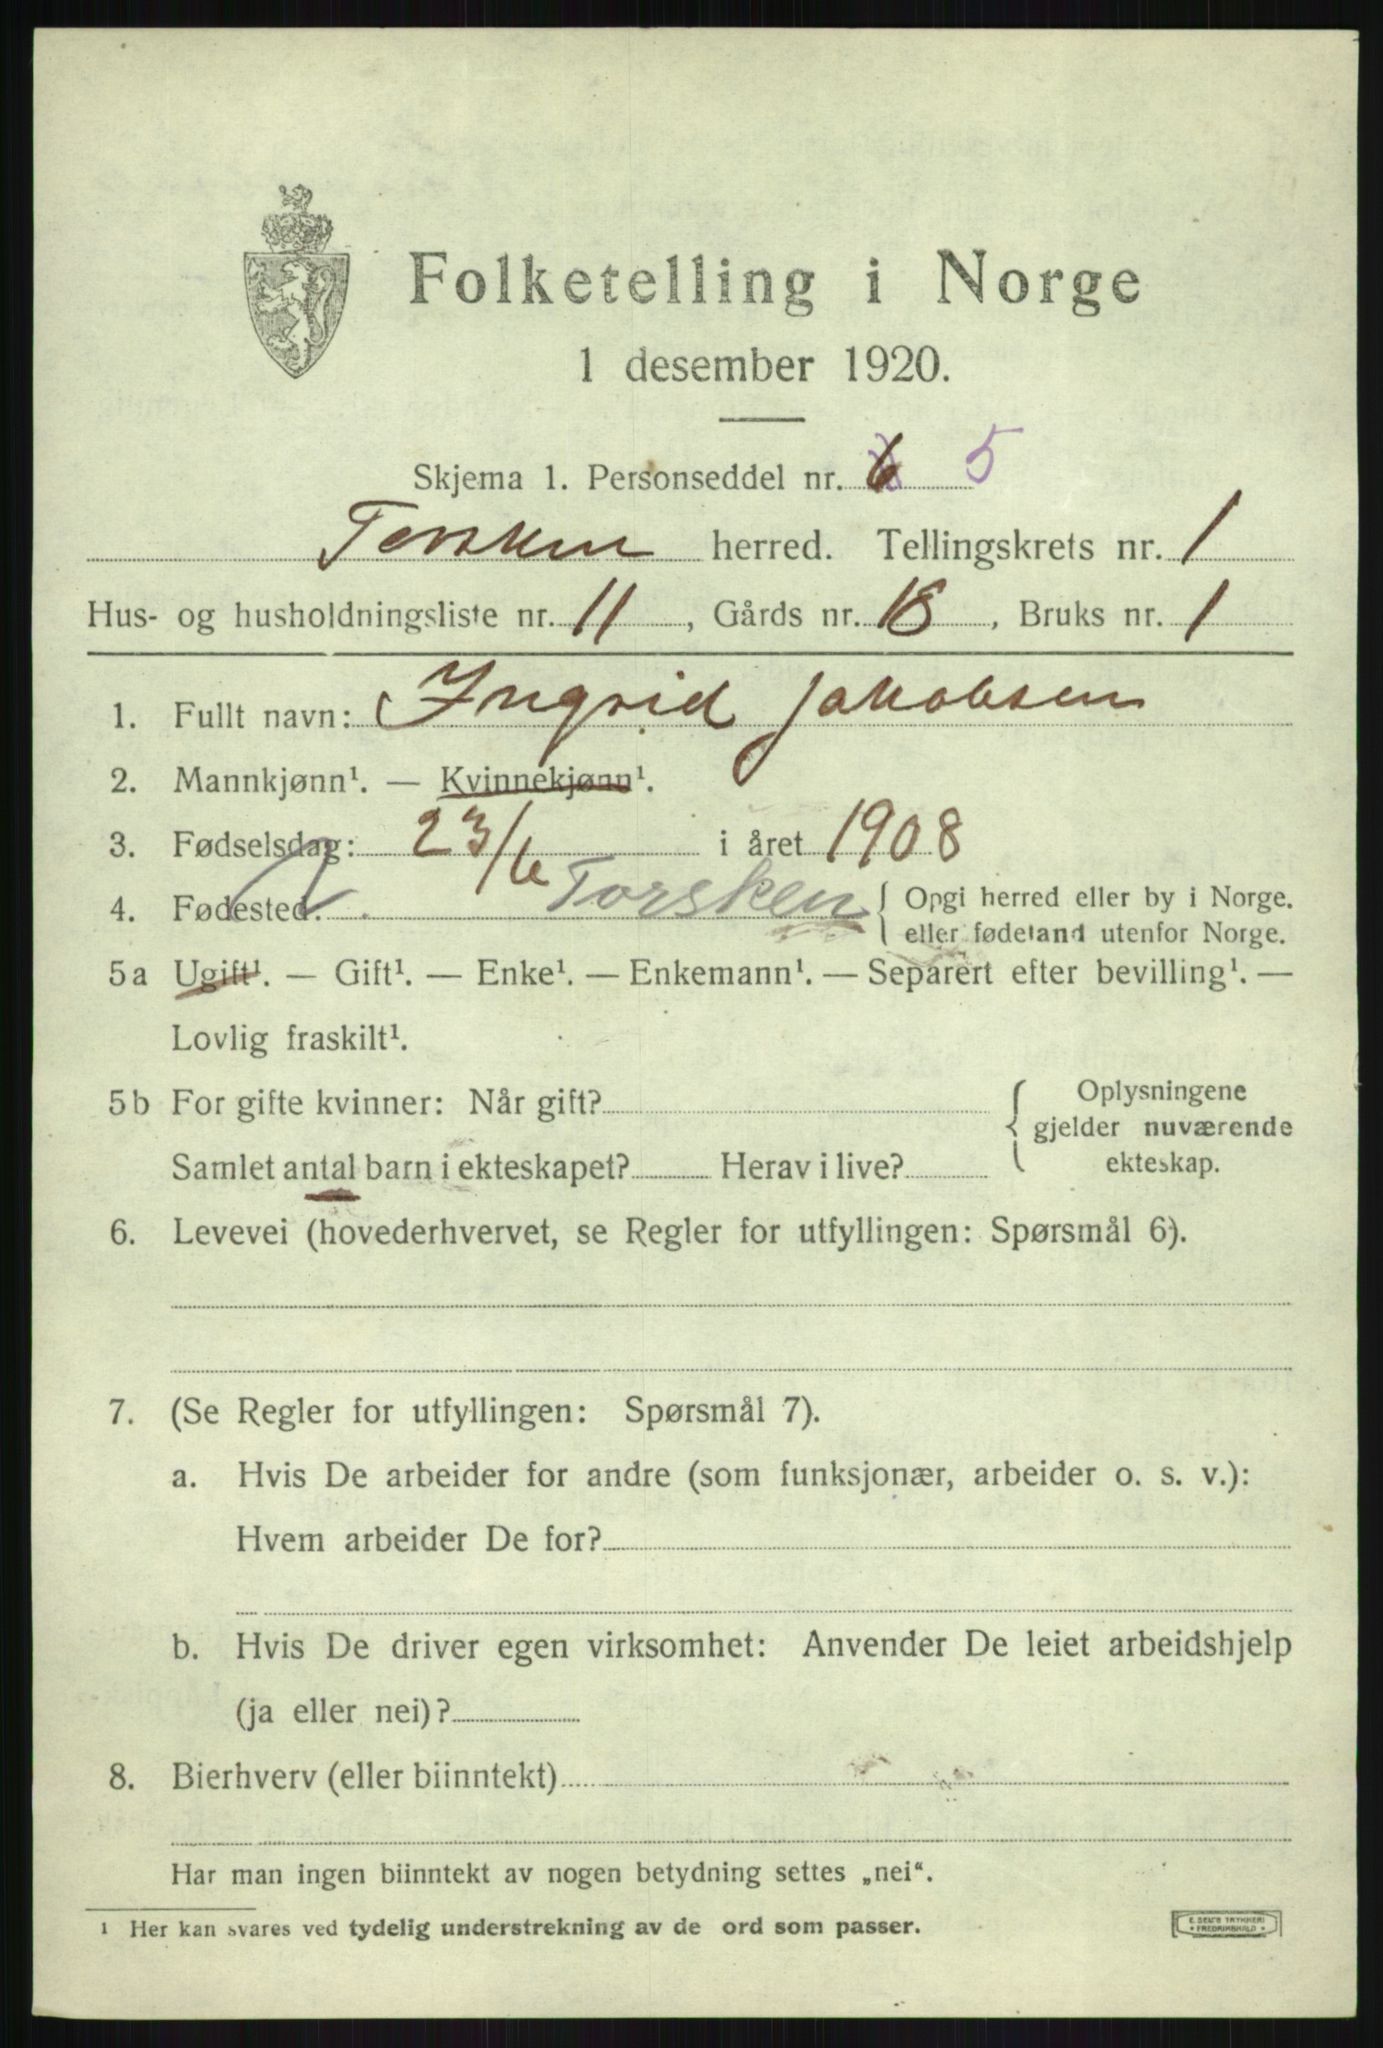 Folketelling i Norge
1 desember 1920.
Skjema 1. Personseddel nr. 6 5
Torsken herred. Tellingskrets nr. 1
Hus- og husholdningsliste nr. 11, Gårds nr. 18, Bruks nr. 1
1. Fullt navn: Ingrid Jakobsen
2. Mannkjønn¹. — Kvinnekjønn¹.
3. Fødselsdag: 23/6 i året 1908
4. Fødested. Torsken { Opgi herred eller by i Norge.
eller fødeland utenfor Norge.
5a Ugift¹. — Gift¹. — Enke¹. — Enkemann¹. — Separert efter bevilling¹. —
Lovlig fraskilt¹.
5b For gifte kvinner: Når gift?
Samlet antal barn i ekteskapet? Herav i live?
{ Oplysningene
gjelder nuværende
ekteskap.
6. Levevei (hovederhvervet, se Regler for utfyllingen: Spørsmål 6).
7. (Se Regler for utfyllingen: Spørsmål 7).
a. Hvis De arbeider for andre (som funksjonær, arbeider o. s. v.):
Hvem arbeider De for?
b. Hvis De driver egen virksomhet: Anvender De leiet arbeidshjelp
(ja eller nei)?
8. Bierhverv (eller biinntekt)
Har man ingen biinntekt av nogen betydning settes „nei“.
¹ Her kan svares ved tydelig understrekning av de ord som passer.
E. SEM'S TRYKKERI
FREDRIKSHALD